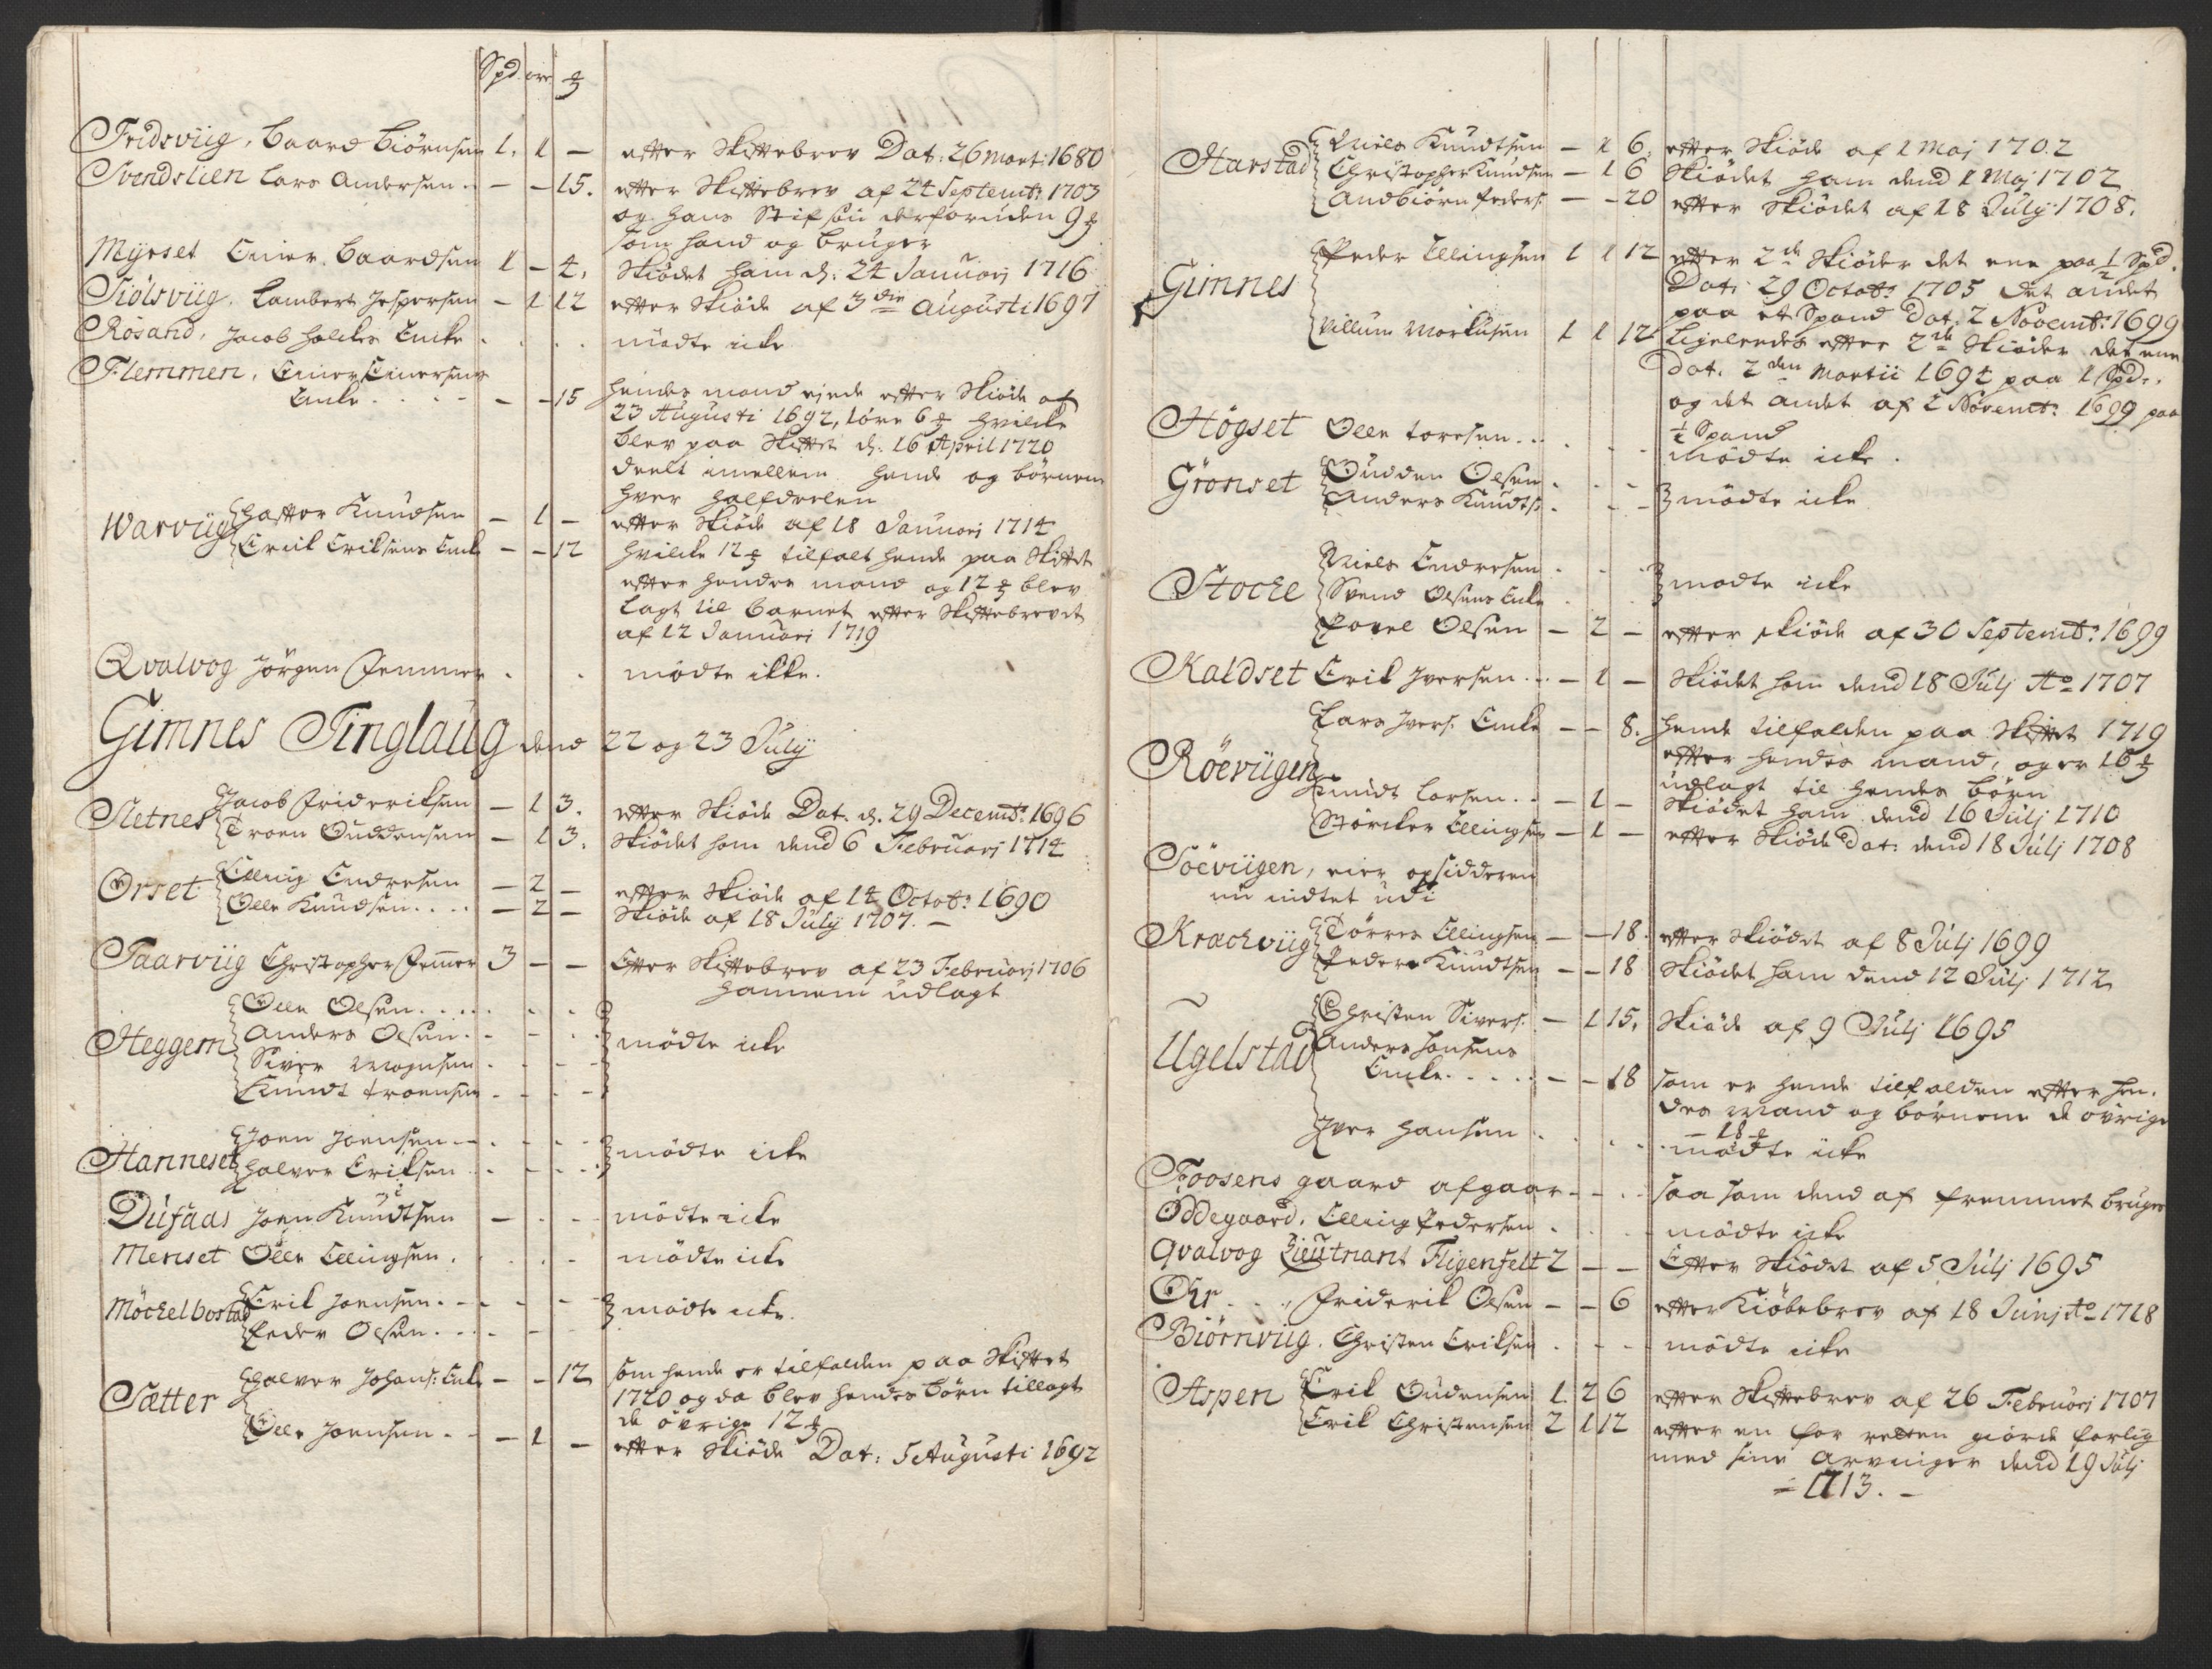 Spd. ore
Fridsviig, Baard Biörnsen 1. 1 — efter Skiftebrev Dat: 26 Mart: 1680
Svendslien Lars Andersen — — 15. efter Skiftebrev af 24 Septembr: 1703
og hans Stifsön derforuden 9
som hand og bruger
Myrset Einer Baardsen 1 — 4. Skiödet ham d: 24 Januarj 1716
Siölsviig, Lambert Jespersen — 1 12 efter Skiöde af 3die Augusti 1697
Rösand, Jacob Holckes Encke mödte icke
Flemmen, Einer Einersens
Encke — — 15 hendes mand eiede efter Skiöde af
23 Augusti 1692, 1 öre 6 hvilcke
blev paa Skiftet d: 16 April 1720
deelt imellem hende og börnene
hver halfdeelen
Warviig Haftor Knudsen — 1 — efter Skiöde af 18 Januarj 1714
Erik Eriksens Encke — — 12 hvilcke 12 tilfalt hende paa Skiftet
efter hendes mand og 12 blev
lagt til barnet efter Skiftebrevet
af 12 Januarj 1719
Qvalvog Jörgen Jemmer mödte ikke.
Gimnes Tinglaug dend 22 og 23 Julij
Sletnes Jacob Frideriksen — 1 3. efter Skiöde Dat. d. 29 Decembr: 1696
Troen Ouddensen — 1 3. Skiödet ham dend 6 Februarj 1714
Orset Elling Endresen — 2 — efter Skiöde af 14 Octobr: 1690
Olle Knudsen — 2 — Skiöde af 18 Julij 1707. —
Taarviig Christopher Jemmer 3 — — Efter Skiftebrev af 23 Februarj 1706
hannem udlagt
Heggem Olle Olsen
Anders Olsen mödte icke
Siver Mognsen
Knudt Troensen
Hanneset Joen Joensen mödte icke
Halvor Eriksen
Dúfaas Joen Knudtsen mödte icke
Menset Olle Ellingsen mödte icke
Möchelbostad Erik Joensen mödte icke
Peder Olsen
Sætter Halvor Johans: Encke — — 12 som hende er tilfalden paa Skiftet
1720 og da blev hendes börn tillagt
de övrige 12
Olle Joensen — 1 — efter Skiöde Dat: 5 Augusti 1692
Harstad Niels Knudtsen — 1 6. efter Skiöde af 1 Maj 1702
Christopher Knudsen — 1 6 Skiödet ham dend 1 Maj 1702
Andbiörn Peders: — — 20 efter Skiödet af 18 Julij 1708.
Gimnes Peder Ellingsen 1 1 12 efter 2de Skiöder det ene paa 1/2 Spd.
Dat: 29 Octobr: 1705 det andet
paa et Spand Dat: 2 Novembr: 1699
Villum Markusen 1 1 12 Ligeleedes efter 2de Skiöder det ene
Dat. 2den Martii 1694 paa 1 Spd.,
og det andet af 2 Novembr: 1699 paa
1/2 Spand
Högset Olle Toresen mödte icke.
Grönset Oudden Olsen
Anders Knudts: mödte icke
Stocke Niels Endresen
Svend Olsens Encke mödte icke
Povel Olsen — 2 — efter skiöde af 30 Septembr: 1699
Kaldset Erik Iversen — 1 — Skiödet ham dend 18 Julj Ao 1707
Röeviigen Lars Ivers: Encke — — 8. hende tilfalden paa Skiftet 1719
efter hendes mand, og er 16
udlagt til hendes börn
Knudt Larsen — 1 — Skiödet ham dend 16 Julj 1710
Störcker Ellingsen — 1 — efter Skiöde Dat: dend 18 Julj 1708
Söeviigen, eier opsidderen
nu intet udi
Krachviig Törres Ellingsen — — 18. efter Skiödet af 8 Julj 1699
Peder Knudtsen — — 18 Skiödet ham dend 12 Julj 1712
Ugelstad Christen Sivers: — 1 15. Skiöde af 9 Julj 1695
Anders Hansens
Encke — — 18 som er hende tilfalden efter hen-
des mand og börnene de övrige
— 18
Iver Hansen mödte icke
Foosens gaard afgaar saa som dend af fremmet bruges
Oddegaard, Elling Pedersen mödte icke
Qvalvog Lieutnant Fligenfelt 2 — — Efter Skiödet af 5 Julj 1695
Ohr Friderik Olsen — — 6 efter Kiöbebrev af 18 Junj Ao 1718
Biörnviig, Christen Eriksen mödte icke
Aspen Erik Oudensen 1. 2 6 efter Skiftebrev af 26 Februarj 1707
Erik Christensen 2 1 12 efter en for retten giorde forlig
med sine Arvinger dend 19 Julj
1713. —